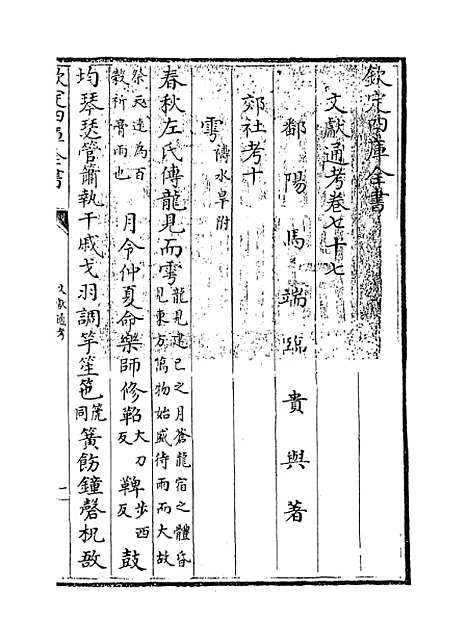 欽定四庫全書
文獻通考卷七十七
鄱陽馬端臨貴與著
郊社考十
雩禱水旱附
春秋左氏傳龍見而雩龍見建巳之月蒼龍宿之體昏見東方萬物始盛待雨而大故
祭天遠為百穀祈膏雨也月令仲夏命樂師修鞀大刀反鞞步西反鼓
均琴瑟管簫執干戚戈羽調竽笙竾箎同簧飭鐘磬柷敔
欽定四庫全書
文獻通考
一